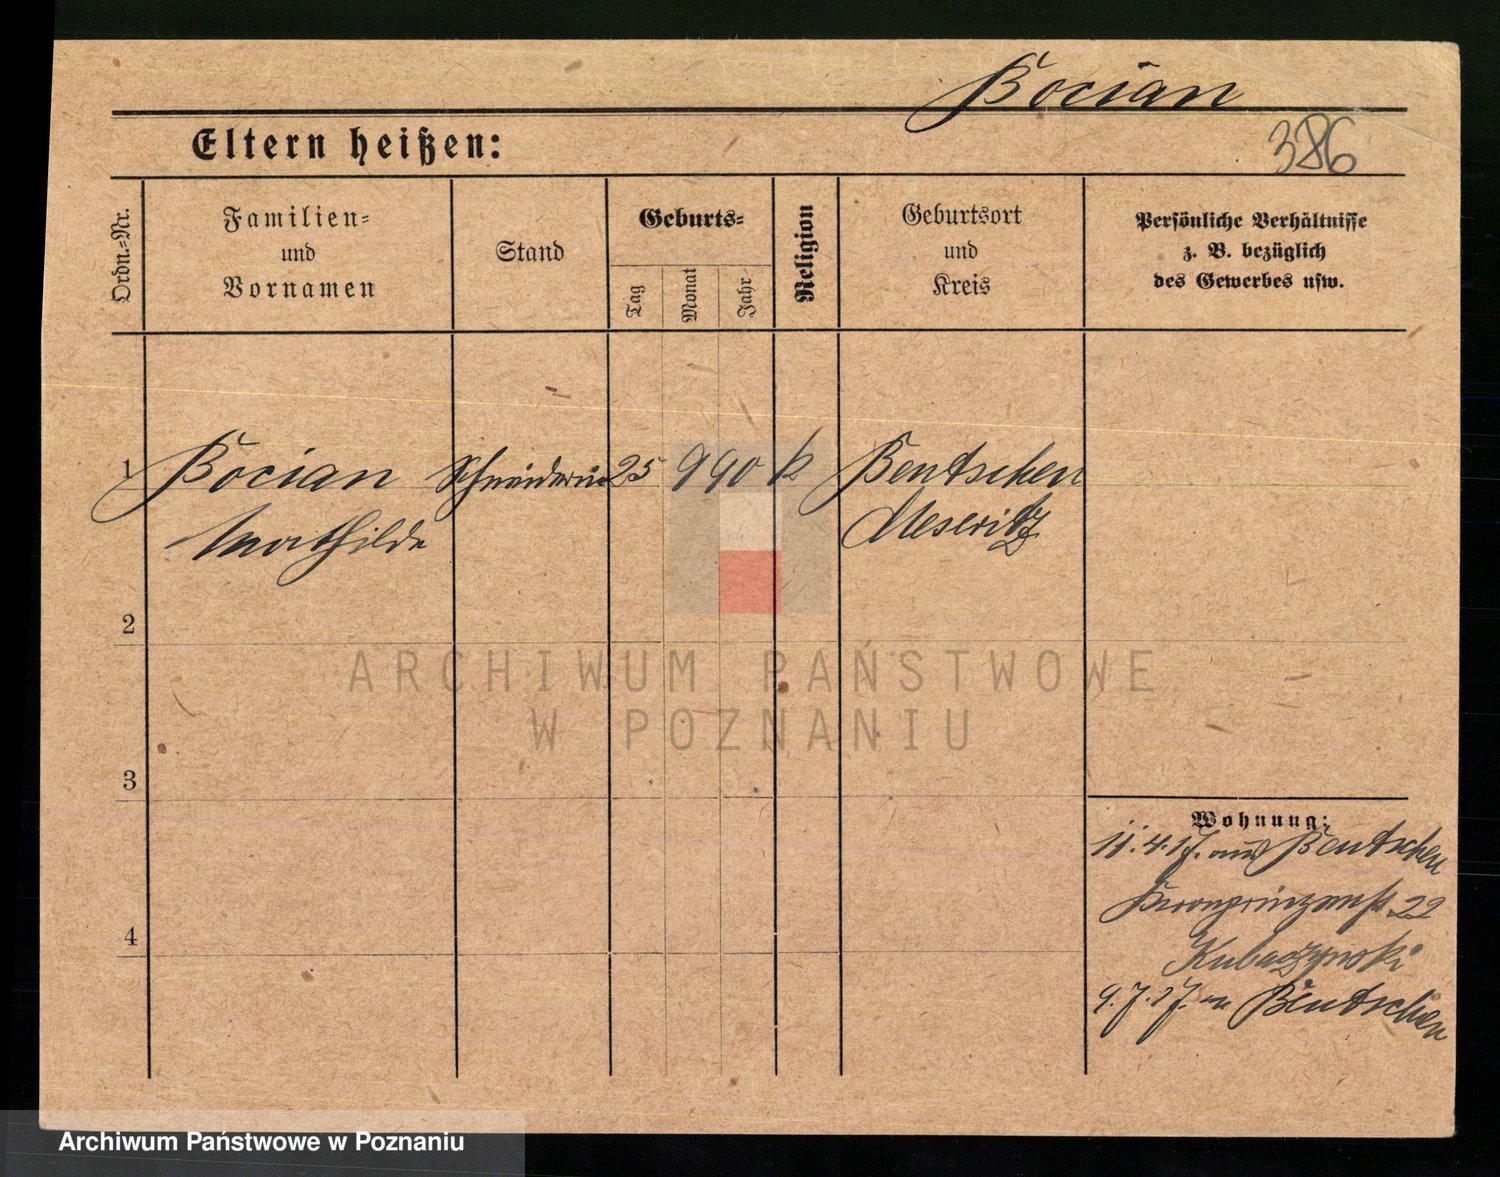 Bocian
Eltern heißen:
386
Ordn.=Nr.
Familien=
und
Vornamen
Stand
Geburts=
Tag
Monat
Jahr
Religion
Geburtsort
und
Kreis
Persönliche Verhältnisse
z. B. bezüglich
des Gewerbes usw.
1 Bocian Schneiderin 25 9 90 k Bentschen
Mathilde Meseritz
2
ARCHIWUM PAŃSTWOWE
W POZNANIU
3
Wohnung:
11.4.17. aus Bentschen
Kronprinzenstr 22
4
Kubaczynski
9.7.17. n Bentschen
Archiwum Państwowe w Poznaniu